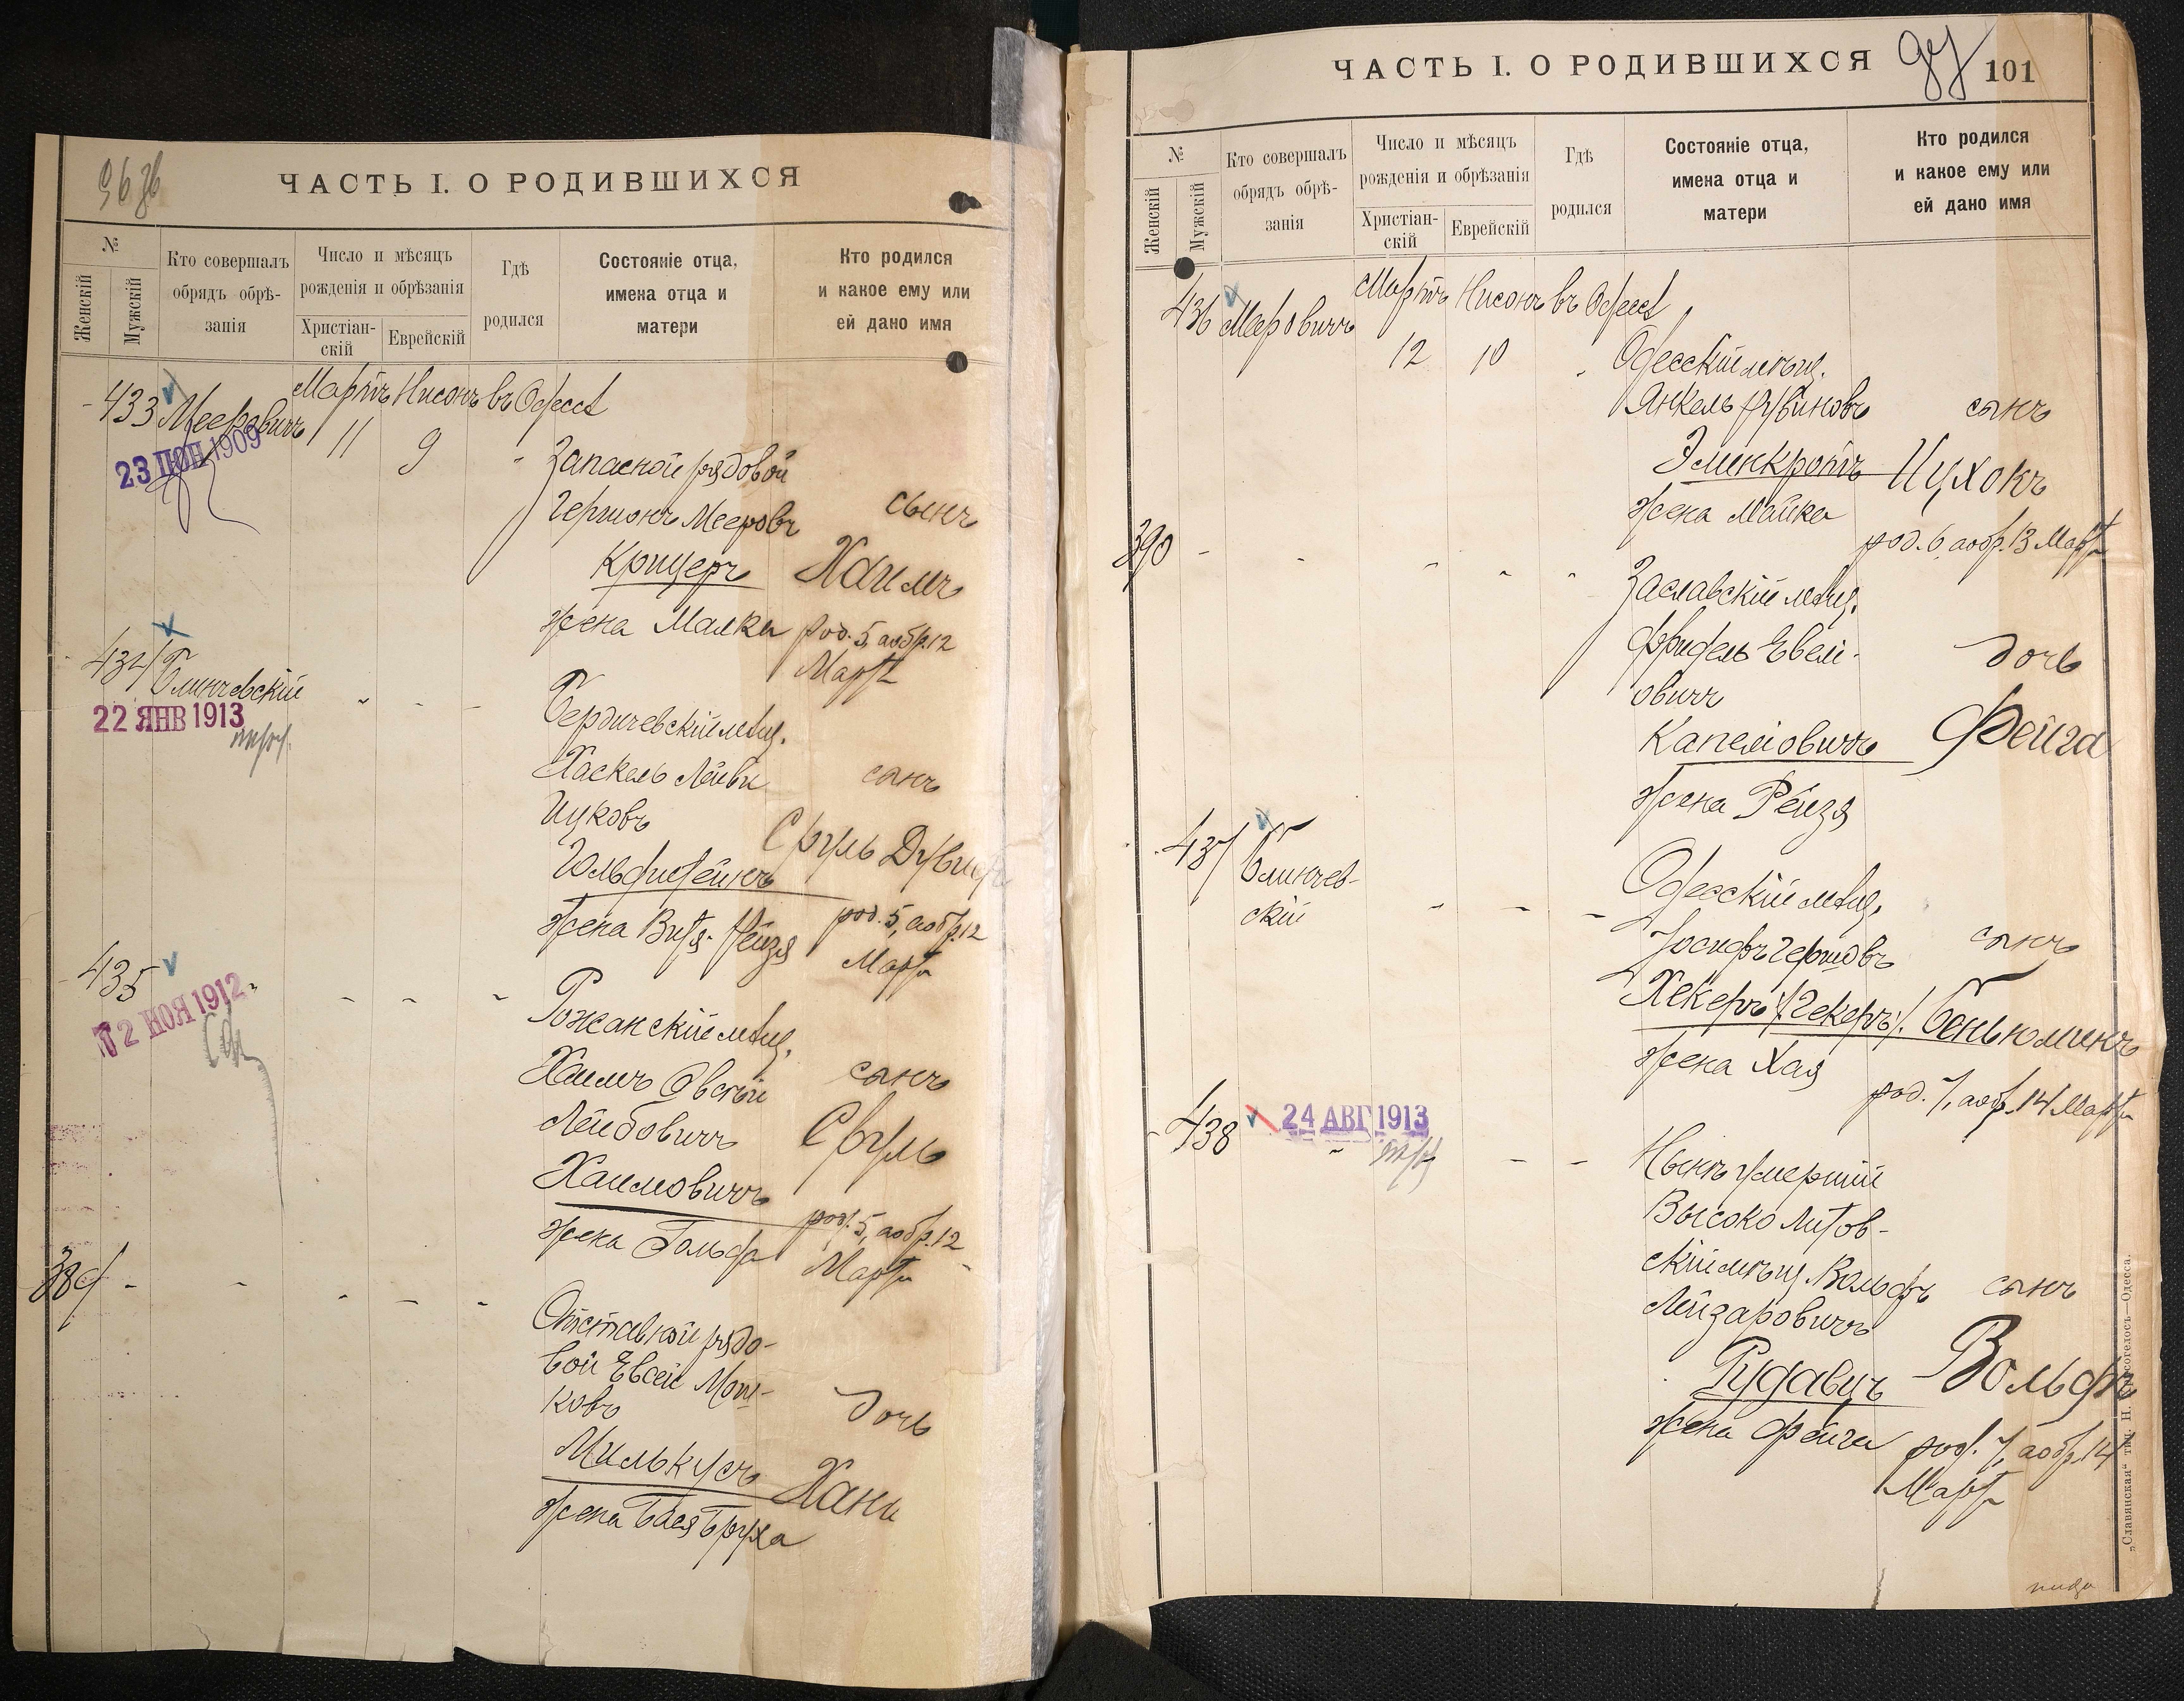 ЧАСТЬ I. О РОДИВШИХСЯ
№
Женскій
Мужскій
Кто совершалъ
обрядъ обрѣ-
занія
Число и мѣсяцъ
рожденія и обрѣзанія
Христіан-
скій
Еврейскій
Гдѣ
родился
Состояніе отца,
имена отца и
матери
Кто родился
и какое ему или
ей дано имя
433 Мееровичъ Мартъ Нисонъ въ Одессѣ
11 9
23 1909
Запасной рядовой
Гершонъ Мееровъ
Крицеръ
жена Малка
сынъ
Хаимъ
род. 5, а обр. 12
Марта
434 Блинчевскій
22 ЯНВ 1913
Бердичевскій мѣщ.
Хаскель Лейви
Ицковъ
Гольдштейнъ
жена Витя-Рейзя
сынъ
Сруль Дувидъ
род. 5, а обр. 12
Марта
435
2 НОЯ 1912
Рожанскій мѣщ.
Хаимъ Овсей
Лейбовичъ
Хаимовичъ
жена Гольда
сынъ
Сруль
род. 5, а обр. 12
Марта
389
Отставной рядо-
вой Евсей Мош-
ковъ
Милькусъ
жена Бася Бруха
дочь
Хана
ЧАСТЬ I. О РОДИВШИХСЯ 97 101
№
Женскій
Мужскій
Кто совершалъ
обрядъ обрѣ-
занія
Число и мѣсяцъ
рожденія и обрѣзанія
Христіан-
скій
Еврейскій
Гдѣ
родился
Состояніе отца,
имена отца и
матери
Кто родился
и какое ему или
ей дано имя
436 Меровичъ Мартъ Нисонъ въ Одессѣ
12 10
Одесскій мѣщ.
Янкель Рувиновъ
Элинкротъ
жена Майка
сынъ
Ицхокъ
род. 6, а обр. 13 Марта
390
Заславскій мѣщ.
Фридель Евели-
овичъ
Капеліовичъ
жена Рейзя
дочь
Фейга
437 Блинчев-
скій
Одесскій мѣщ.
Іосифъ Гершовъ
Хекеръ /Гекеръ/.
жена Хая
сынъ
Беньюминъ
род. 7, а обр. 14 Марта
438
24 АВГ 1913
Нынѣ умершій
Высоко Литов-
скій мѣщ. Вольфъ
Лейзаровичъ
Рудавецъ
жена Фейга
сынъ
Вольфъ
род. 7, а обр. 14
Марта
„Славянская“ тип. Н. Хрисогелосъ—Одесса.